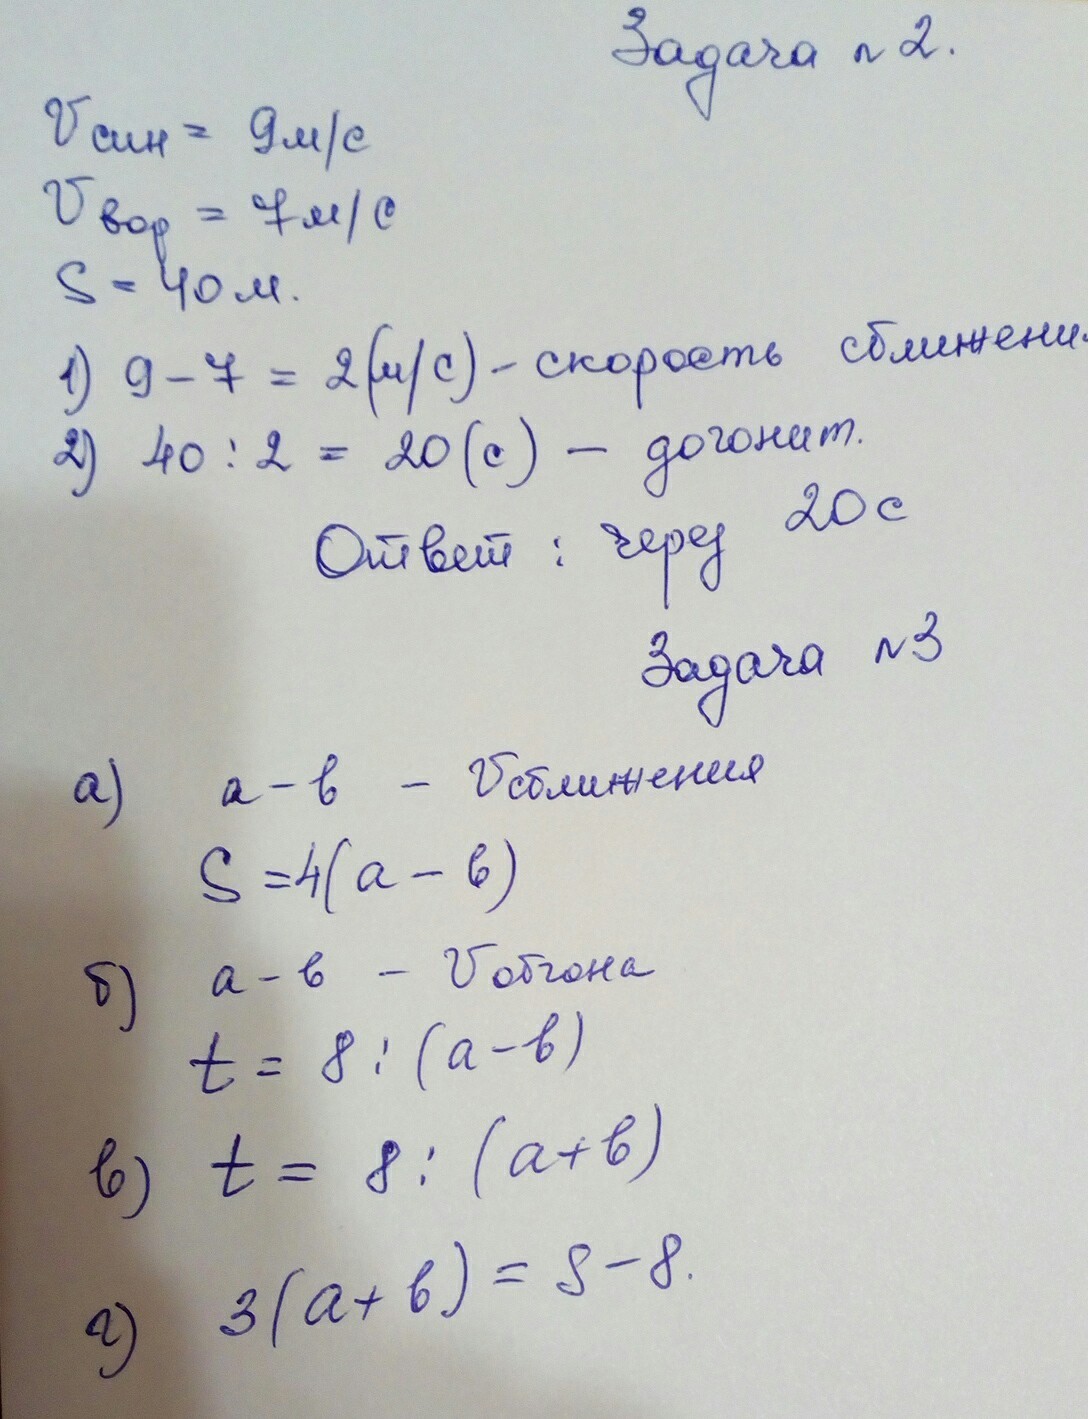 Задача n 2.
Vсин = 9м/с
Vвор = 7м/с
S = 40 м.
1) 9 - 7 = 2(м/с) - скорость сближени
2) 40 : 2 = 20 (с) - догонит.
Ответ : через 20 с
Задача n 3
а) а - в - Vсближения
S = 4(а - в)
б) а - в - Vобгона
t = 8 : (а - в)
в) t = 8 : (а + в)
г) 3(а + в) = S - 8.